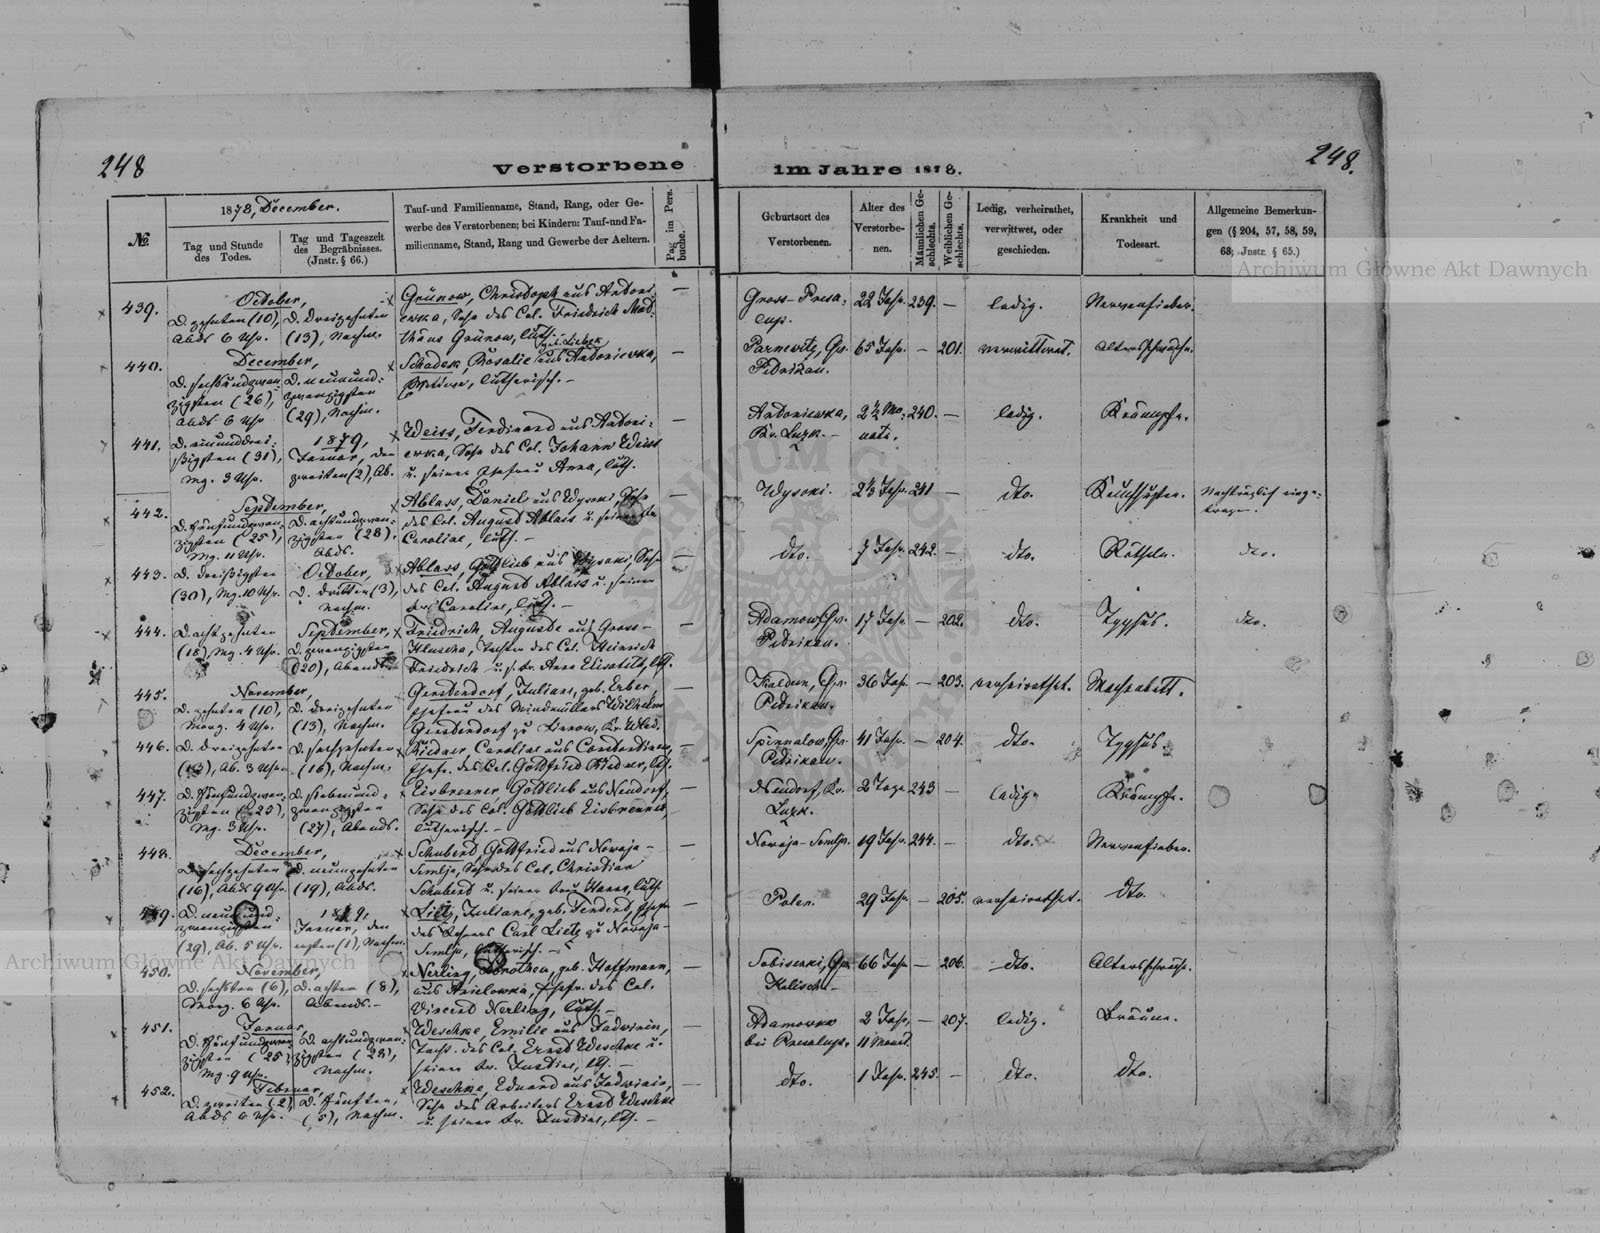 248
Verstorbene
im Jahre 1878.
248.
№
1878, December.
Tag und Stunde
des Todes.
Tag und Tageszeit
des Begräbnisses.
(Jnstr. § 66.)
Tauf-und Familienname, Stand, Rang, oder Ge-
werbe des Verstorbenen; bei Kindern: Tauf-und Fa-
milienname, Stand, Rang und Gewerbe der Aeltern.
Pag. im Pers.
buche.
Geburtsort des
Verstorbenen.
Alter des
Verstorbe-
nen.
Männlichen Ge-
schlechts.
Weiblichen Ge-
schlechts.
Ledig, verheirathet,
verwittwet, oder
geschieden.
Krankheit und
Todesart.
Allgemeine Bemerkun-
gen (§ 204, 57, 58, 59,
63; Jnstr. § 65.)
Archiwum Główne Akt Dawnych
439.
October,
D. zehnten (10),
Abds 6 Uhr.
D. dreizehnten
(13), Nachm.
Grünow, Christoph aus Antoni-
ewka, Sohn des Col. Friedrich
Grünow, luth.
22 Jahr.
239.
—
ledig.
Nervenfieber.
440.
December,
D. sechsundzwan-
zigsten (26),
Abds 6 Uhr
D. neunund-
zwanzigsten
(29), Nachm.
Schadek, Rosalie aus Antoniewka,
Wittwe, lutherisch. —
Petrikau.
65 Jahr.
—
201.
verwittwet.
Altersschwäche.
441.
D. einunddrei-
ßigsten (31),
Mg. 3 Uhr.
1879,
Januar, den
zweiten (2), Ab.
Weiss, Ferdinand aus Antoni-
ewka, Sohn des Col. Johann Weiss
u. seiner Ehefrau Anna, luth.
Antoniewka,
Kr. Luzk. —
2½ Mo-
nate.
240.
—
ledig.
Krämpfe.
442.
September,
D. fünfundzwan-
zigsten (25),
Mg. 11 Uhr.
D. achtundzwan-
zigsten (28),
Abds.
Ablass, Daniel aus Wysoki, Sohn
des Col. August Ablass u. seiner Fr.
Caroline, luth. —
Wysoki.
241
—
dto.
Keuchhusten.
Nachträglich einge-
tragen.
443.
D. dreißigsten
(30), Mg. 10 Uhr.
October,
D. dritten (3),
Nachm.
Ablass, Gottlieb aus Wysoki, Sohn
des Col. August Ablass u. seiner
Fr. Caroline, luth. —
dto.
7 Jahr.
242.
—
dto.
Rötheln.
dto.
444.
D. achtzehnten
(18), Mg. 4 Uhr.
September,
D. zwanzigsten
(20), Abends.
Friedrich, Auguste aus Gross-
Hluscha, Tochter des Col. Heinrich
Friedrich u. s. Fr. Anna Elisabeth, luth.
Adamow, Gv.
Petrikau.
17 Jahr.
—
202.
dto.
Typhus.
dto.
445.
November,
D. zehnten (10),
Morg. 4 Uhr.
D. dreizehnten
(13), Nachm.
Gerstendorf, Juliane, geb. Erber,
Ehefrau des Windmüllers Wilhelm
Kaldun, Gv.
Petrikau.
36 Jahr.
—
203.
verheirathet.
Wochenbett.
446.
D. dreizehnten
(13), Ab. 3 Uhr.
D. sechzehnten
(16), Nachm.
Riedner, Caroline aus Constantinow,
Ehefr. des Col. Gottfried Riedner, luth.
Petrikau.
41 Jahr.
—
204.
dto.
Typhus.
447.
D. fünfundzwan-
zigsten (25),
Mg. 3 Uhr.
D. siebenund-
zwanzigsten
(27), Abends.
Eisbrenner Gottlieb aus Neudorf,
Sohn des Col. Gottlieb Eisbrenner,
lutherisch. —
Neudorf, Kr.
Luzk.
2 Tage
243
—
ledig.
Krämpfe.
448.
December,
D. sechzehnten
(16), Abds 9 Uhr.
D. neunzehnten
(19), Abds.
Schubert Gottfried aus Nowaja-
Semlja, Sohn des Col. Christian
Schubert u. seiner Frau Hanne, luth.
Nowaja-Semlja.
19 Jahr.
244.
—
dto.
Nervenfieber.
449.
D. neunund-
zwanzigsten
(29), Ab. 5 Uhr.
1879,
Januar, den
ersten (1), Nachm.
Lietz, Juliane, geb. Ehefr.
des Lehrers Carl Lietz zu Nowaja-
Semlja, lutherisch. —
Polen.
29 Jahr.
—
205.
verheirathet.
dto.
Archiwum Główne Akt Dawnych
450.
November,
D. sechsten (6),
Morg. 6 Uhr.
D. achten (8),
Abends. —
Nerling, Dorothea, geb. Hoffmann,
aus Anielowka, Ehefr. des Col.
Vincent Nerling, luth. —
Kalisch. —
66 Jahr
—
206.
dto.
Altersschwäche.
451.
Januar,
D. fünfundzwan-
zigsten (25),
Mg. 9 Uhr.
D. achtundzwan-
zigsten (28),
Nachm.
Weschke, Emilie aus Jadwinin,
Tocht. des Col. Ernst Weschke u.
seiner Fr. Justine, luth. —
2 Jahr,
11 Monat.
—
207.
ledig.
Bräune.
452.
Februar,
D. zweiten (2),
Abds 6 Uhr.
D. fünften,
(5), Nachm.
Weschke, Eduard aus Jadwinin,
Sohn des Arbeiters Ernst Weschke
u. seiner Fr. Justine, luth. —
dto.
1 Jahr.
245.
—
dto.
dto.